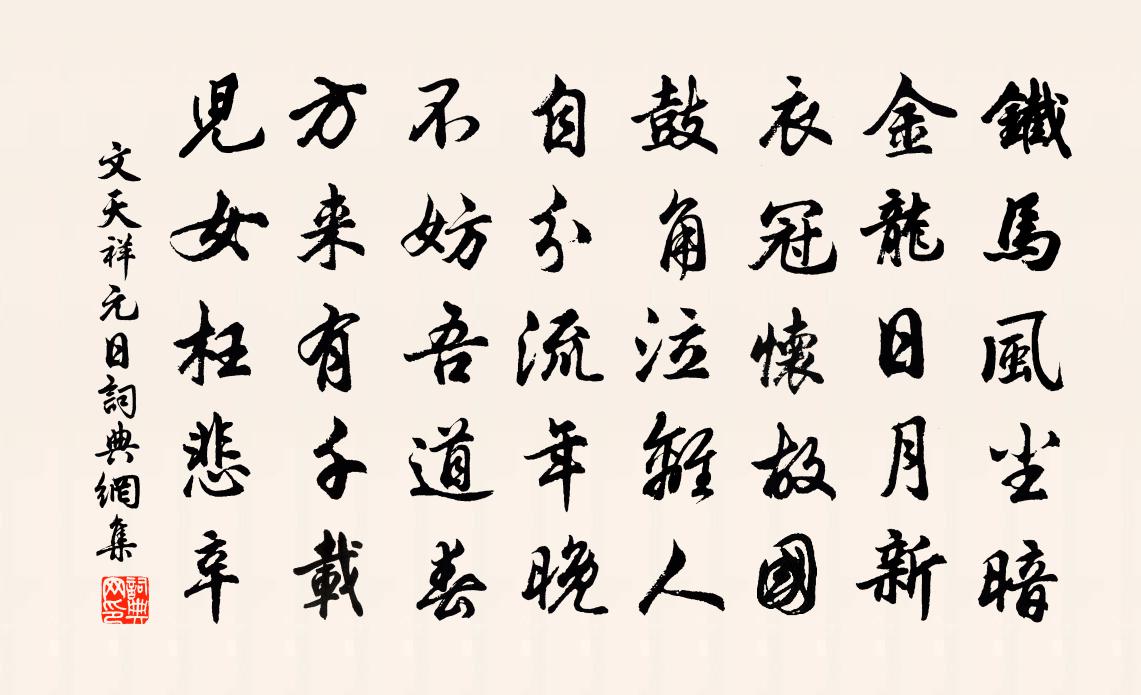 鐵馬風尘暗
金龍日月新
衣冠懷故國
鼓角泣離人
自分流年晚
不妨吾道春
方来有千載
児女枉悲辛
文天祥元日詞典網集
詞典网印